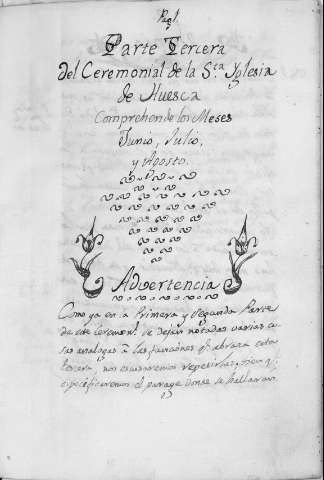 Pag. 1.
Parte Tercera
del Ceremonial de la S.ta Yglesia
de Huesca
Comprehende los Meses
Junio, Julio,
y Agosto.
Advertencia
Como ya en la Primera y Segunda Parte
de este Ceremon.l se dejan notadas varias co
sas analogas a las funciones q.e abraza esta
tercera, nos escusaremos repetirlas, sino q.e
especificaremos el parage donde se hallaran